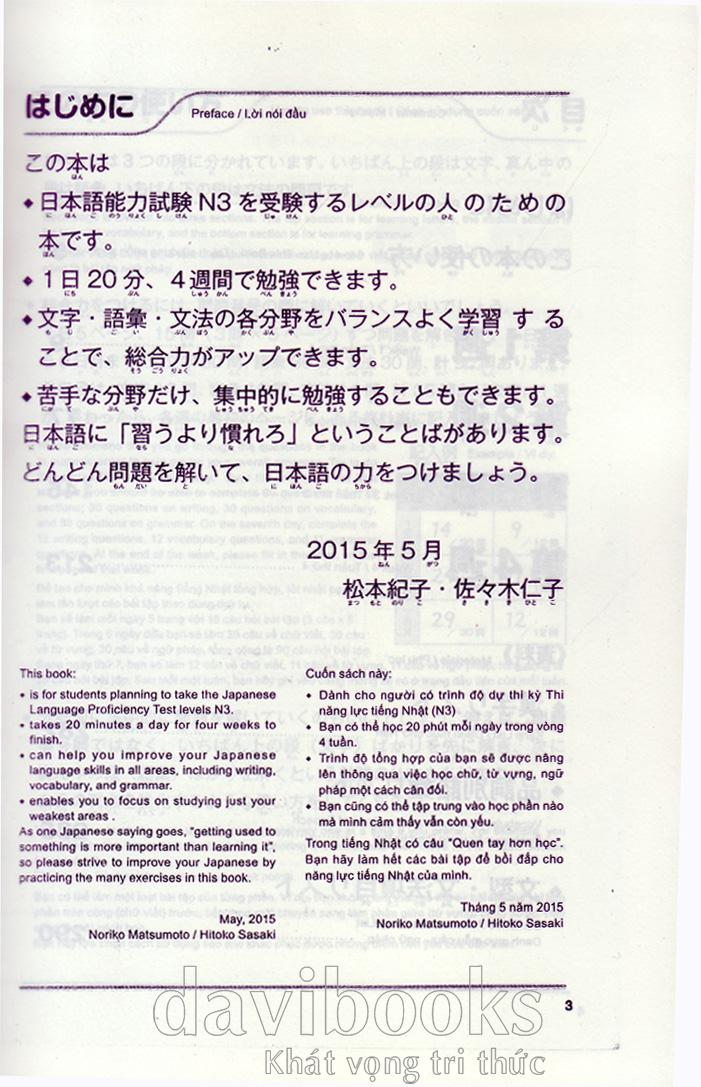 はじめに
Preface / Lời nói đầu
この本は
◆日本語能力試験 N3 を受験するレベルの人のための
本です。
◆1日 20分、4週間で勉強できます。
◆文字・語彙・文法の各分野をバランスよく学習 する
ことで、総合力がアップできます。
◆苦手な分野だけ、集中的に勉強することもできます。
日本語に「習うより慣れろ」ということばがあります。
どんどん問題を解いて、日本語の力をつけましょう。
2015年5月
松本紀子・佐々木仁子
This book:
◆ is for students planning to take the Japanese
Language Proficiency Test levels N3.
◆ takes 20 minutes a day for four weeks to
finish.
◆ can help you improve your Japanese
language skills in all areas, including writing,
vocabulary, and grammar.
◆ enables you to focus on studying just your
weakest areas .
As one Japanese saying goes, "getting used to
something is more important than learning it",
so please strive to improve your Japanese by
practicing the many exercises in this book.
May, 2015
Noriko Matsumoto / Hitoko Sasaki
Cuốn sách này:
◆ Dành cho người có trình độ dự thi kỳ Thi
năng lực tiếng Nhật (N3)
◆ Bạn có thể học 20 phút mỗi ngày trong vòng
4 tuần.
◆ Trình độ tổng hợp của bạn sẽ được nâng
lên thông qua việc học chữ, từ vựng, ngữ
pháp một cách cân đối.
◆ Bạn cũng có thể tập trung vào học phần nào
mà mình cảm thấy vẫn còn yếu.
Trong tiếng Nhật có câu "Quen tay hơn học".
Bạn hãy làm hết các bài tập để bồi đắp cho
năng lực tiếng Nhật của mình.
Tháng 5 năm 2015
Noriko Matsumoto / Hitoko Sasaki
3
davibooks
Khát vọng tri thức